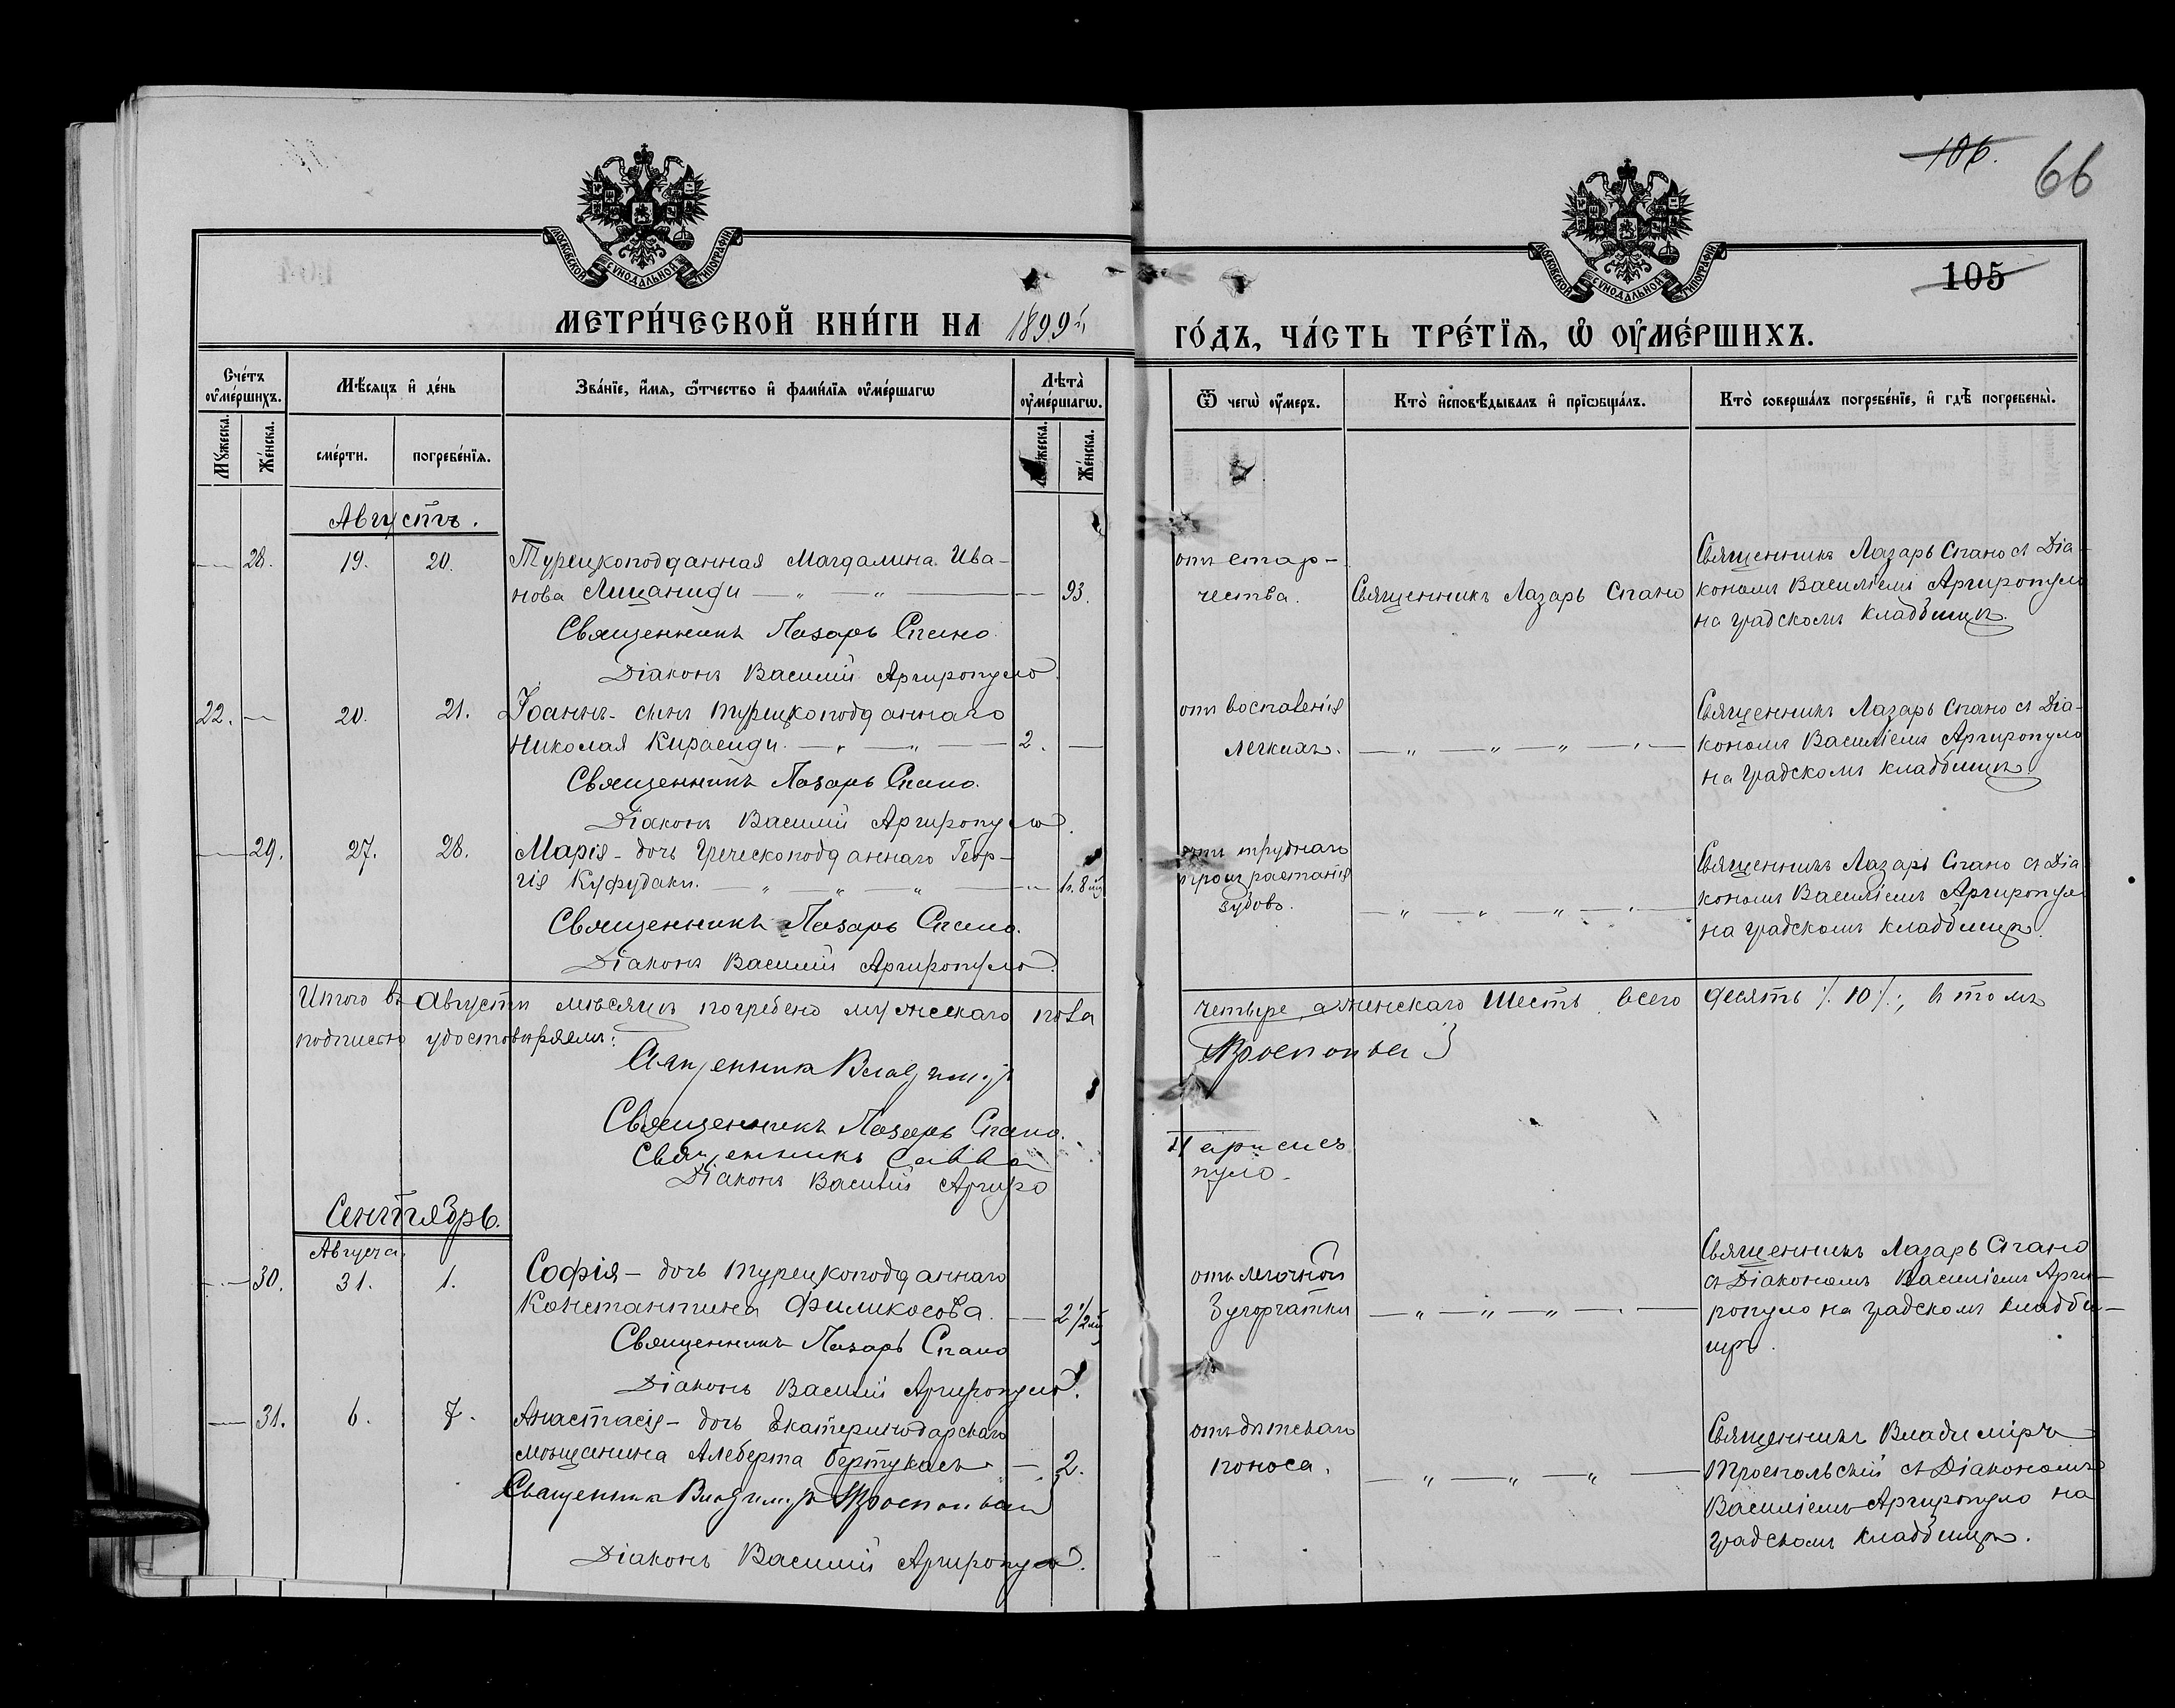 106.
66
МОСКОВСКОЙ СѴНОДАЛЬНОЙ ТИПОГРАФІИ
МОСКОВСКОЙ СѴНОДАЛЬНОЙ ТИПОГРАФІИ
105
МЕТРИ́ЧЕСКОЙ КНИ́ГИ НА 1899й
ГО́ДЪ, ЧА́СТЬ ТРЕ́ТЇѦ, Ѡ҆ ОУ҆МЕ́РШИХЪ.
Сче́тъ оу҆ме́ршихъ.
Мѣ́сяцъ и҆ де́нь
Зва́нїе, и҆́мѧ, ѻ҆́тчество и҆ фами́лїѧ оу҆ме́ршагѡ
Лѣта̀ оу҆ме́ршагѡ.
Ѿ чегѡ̀ оу҆́меръ.
Кто̀ и҆сповѣ́дывалъ и҆ прїѡбща́лъ.
Кто̀ соверша́лъ погребе́нїе, и҆ гдѣ̀ погребены̀.
Мꙋ́жеска.
Же́нска.
сме́рти.
погребе́нїѧ.
Мꙋ́жеска.
Же́нска.
Августъ.
— 28. 19. 20. Турецкоподданная Магдалина Ива-
нова Лицаниди — „ — „ — — 93.
Священникъ Лазарь Спано.
Діаконъ Василій Аргиропуло.
отъ стар-
чества.
Священникъ Лазарь Спано
Священникъ Лазарь Спано съ Діа-
кономъ Василіемъ Аргиропуло
на градскомъ кладбищѣ.
22. — 20. 21. Іоаннъ - сынъ турецкоподданнаго
Николая Кирасиди. — „ — „ — 2. —
Священникъ Лазарь Спано.
Діаконъ Василій Аргиропуло.
отъ воспаленія
легкихъ. — „ — „ — „ —
Священникъ Лазарь Спано съ Діа-
кономъ Василіемъ Аргиропуло
на градскомъ кладбищѣ
— 29. 27. 28. Марія - дочь греческоподданнаго Геор-
гія Куфудаки. — „ — „ — „ — — 1г. 8
Священникъ Лазарь Спано.
Діаконъ Василій Аргиропуло.
отъ труднаго
произрастанія
зубовъ. — „ — „ — „ —
Священникъ Лазарь Спано съ Діа
кономъ Василіемъ Аргиропуло
на градскомъ кладбищѣ.
Итого въ Августѣ мѣсяцѣ погребено мужескаго пола четыре, а женскаго шесть, всего десять /. 10 /.; въ томъ
подписью удостовѣряемъ:
Священникъ Владиміръ Троепольскій
Священникъ Лазарь Спано.
Священникъ Савва
Діаконъ Василій Аргиропуло.
Сентябрь.
Августа
— 30. 31. 1. Софія - дочь турецкоподданнаго
Константина Филикосова. — 2 1/2
Священникъ Лазарь Спано
Діаконъ Василій Аргиропуло.
отъ легочной
Бугорчатки — „ — „ — „ —
Священникъ Лазарь Спано
съ Діакономъ Василіемъ Арги-
ропуло на градскомъ кладби-
щѣ.
— 31. 6. 7. Анастасія - дочь Екатеринодарскаго
мѣщанина Алеберта Бертукасъ — 2.
Священникъ Владиміръ Троепольскій
Діаконъ Василій Аргиропуло.
отъ дѣтскаго
поноса. — „ — „ — „ —
Священникъ Владиміръ
Троепольскій съ Діакономъ
Василіемъ Аргиропуло на
градскомъ кладбищѣ.